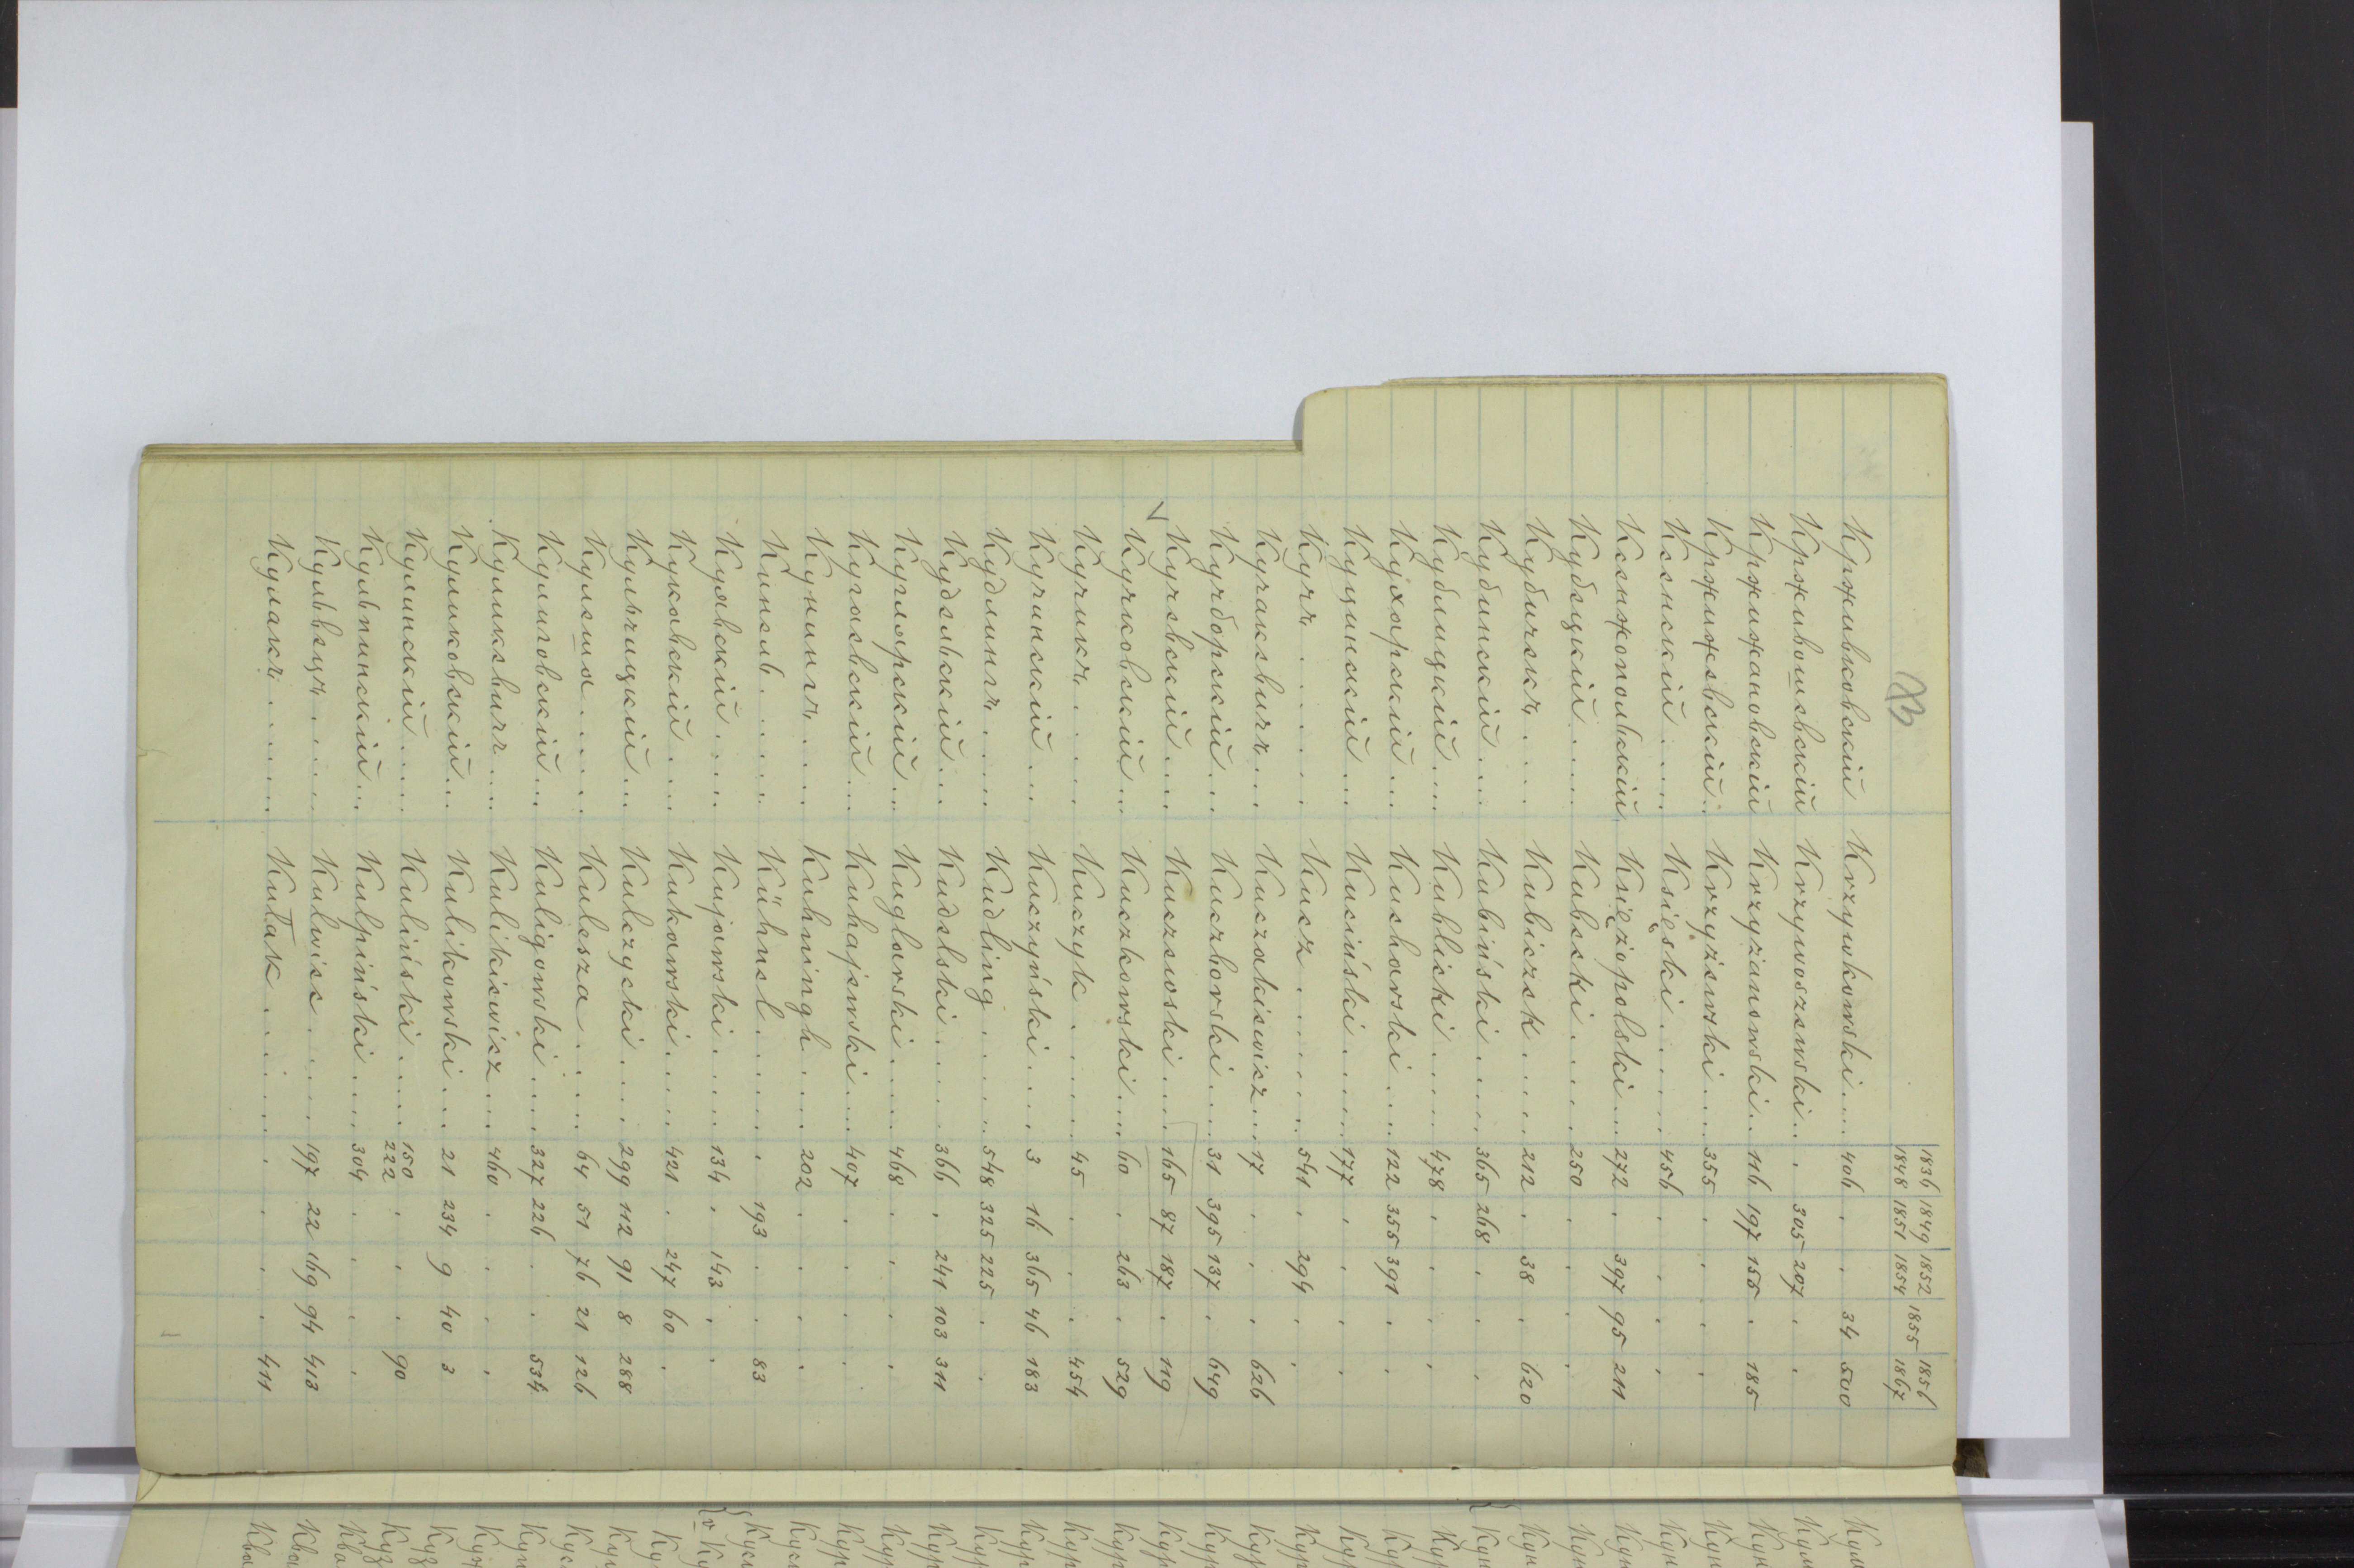 1836 1849 1852 1855 1856
1848 1851 1854 1867
Крживковскій Krzywkowski .... 406 . . 34 500
Кржи­вошевскій Krzywoszewski .. . 305 207 . .
Кржижановскій Krzyżanowski .. 116 197 155 . 185
Кржижевскій .. Krzyżewski .... 355 . . . .
Ксенскій ..... Księski ...... 456 . . . .
Ксенжопольскій Księżopolski ... 272 . 397 95 211
Кубецкій ..... Kubecki ..... 250 . . . .
Кубичекъ .... Kubiczek ..... 212 . 38 . 620
Кубинскій .... Kubiński ..... 365 268 . . .
Кублицкій .... Kublicki ..... 478 . . . .
Кухарскій .... Kucharski .... 122 355 391 . .
Куцинскій .... Kuciński ..... 177 . . . .
Кучъ ...... Kucz ....... 541 . 294 . .
Кучакевичъ ... Kuczakiewicz ... 17 . . . 626
Кучборскій ... Kuczborski .... 31 395 137 . 649
V Кучевскій .... Kuczewski .... 165 87 187 . 119
Кучковскій ... Kuczkowski .... 60 . 263 . 529
Кучикъ ..... Kuczyk ...... 45 . . . 454
Кучинскій ... Kuczyński .... 3 16 365 46 183
Кудлингъ .... Kudling ..... 548 325 225 . .
Кудельскій ... Kudelski ..... 366 . 241 103 311
Кугларскій ... Kuglarski .... 468 . . . .
Кугаевскій ... Kuhajewski ... 407 . . . .
Кунингъ .... Kuhningh .... 202 . . . .
Кинель ..... Kühnel ...... . 193 . . 83
Куявскій .... Kujawski .... 134 . 143 . .
Кукавскій .... Kukawski .... 421 . 247 60 .
Кульчицкій .. Kulczycki .... 299 112 91 8 288
Кулеша ..... Kulesza ..... 64 51 76 21 126
Кулиговскій ... Kuligowski ... 327 226 . . 534
Куликевичъ ... Kulikiewicz ... 460 . . . .
Куликовскій .. Kulikowski ... 21 234 9 40 3
Кулинскій .... Kuliński .... 150 . . . 90
222
Кульпинскій ... Kulpiński .... 304 . . . .
Кульвецъ .... Kulwiec .... 197 22 169 94 413
Кулакъ ...... Kułak ...... . . . . 411